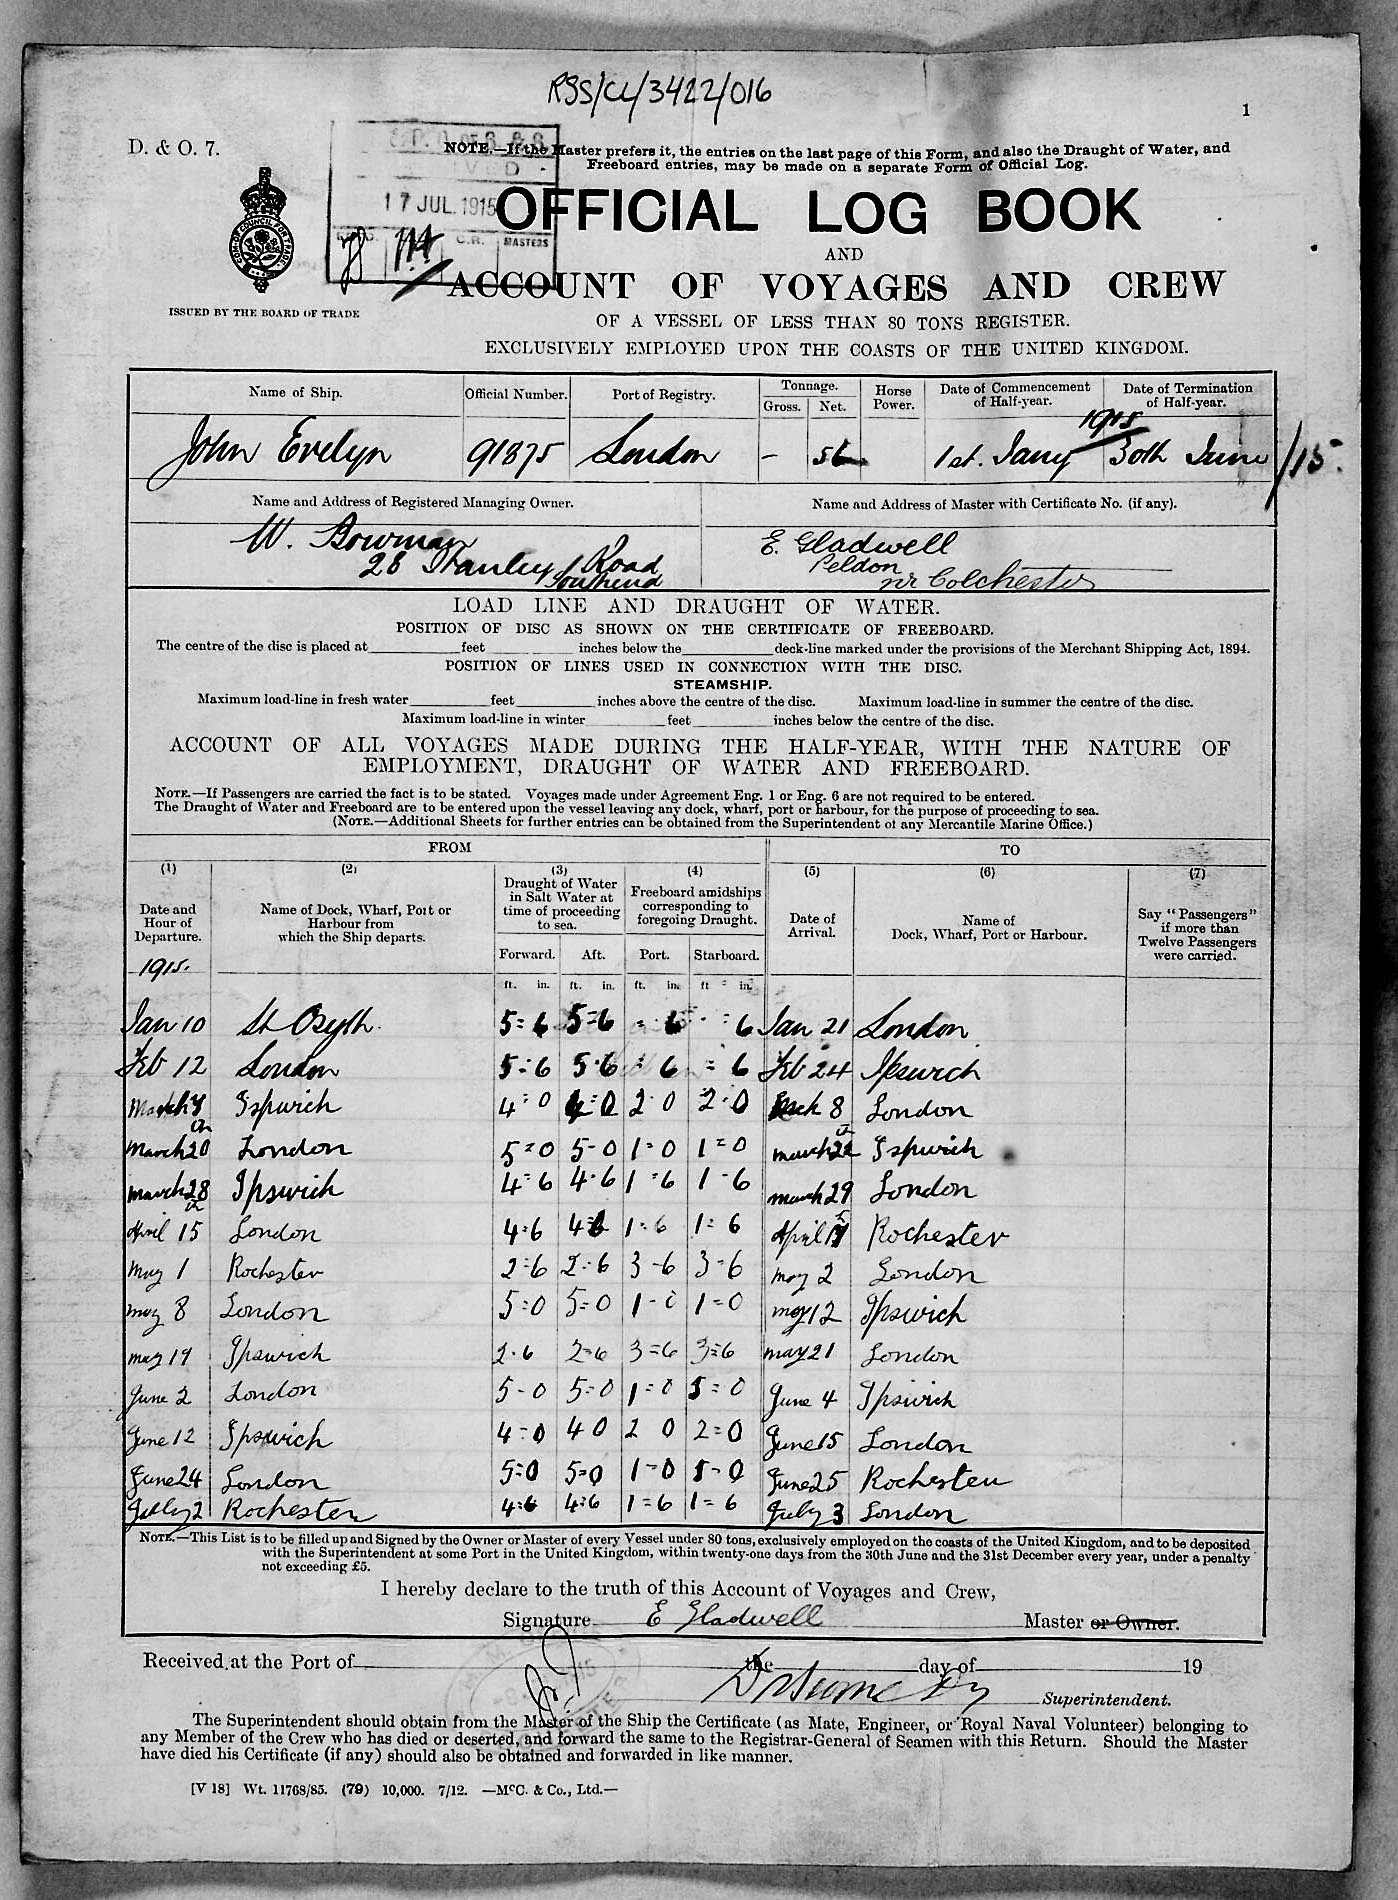 RSS/CL/3422/016
1
D. & O. 7.
NOTE.—If the Master prefers it, the entries on the last page of this Form, and also the Draught of Water, and
Freeboard entries, may be made on a separate Form of Official Log.
17 JUL. 1915
C.R. MASTERS
OFFICIAL LOG BOOK
AND
ACCOUNT OF VOYAGES AND CREW
ISSUED BY THE BOARD OF TRADE
OF A VESSEL OF LESS THAN 80 TONS REGISTER.
EXCLUSIVELY EMPLOYED UPON THE COASTS OF THE UNITED KINGDOM.
Name of Ship. Official Number. Port of Registry. Tonnage. Gross. Net. Horse Power. Date of Commencement of Half-year. Date of Termination of Half-year.
1915
John Evelyn 91875 London – 56 1st. Jany 30th June /15.
Name and Address of Registered Managing Owner. Name and Address of Master with Certificate No. (if any).
W. Bowman E. Gladwell
28 Stanley Road Peldon
Southend nr Colchester
LOAD LINE AND DRAUGHT OF WATER.
POSITION OF DISC AS SHOWN ON THE CERTIFICATE OF FREEBOARD.
The centre of the disc is placed at feet inches below the deck-line marked under the provisions of the Merchant Shipping Act, 1894.
POSITION OF LINES USED IN CONNECTION WITH THE DISC.
STEAMSHIP.
Maximum load-line in fresh water feet inches above the centre of the disc. Maximum load-line in summer the centre of the disc.
Maximum load-line in winter feet inches below the centre of the disc.
ACCOUNT OF ALL VOYAGES MADE DURING THE HALF-YEAR, WITH THE NATURE OF
EMPLOYMENT, DRAUGHT OF WATER AND FREEBOARD.
NOTE.—If Passengers are carried the fact is to be stated. Voyages made under Agreement Eng. 1 or Eng. 6 are not required to be entered.
The Draught of Water and Freeboard are to be entered upon the vessel leaving any dock, wharf, port or harbour, for the purpose of proceeding to sea.
(NOTE.—Additional Sheets for further entries can be obtained from the Superintendent of any Mercantile Marine Office.)
FROM TO
(1) (2) (3) (4) (5) (6) (7)
Date and Hour of Departure. Name of Dock, Wharf, Port or Harbour from which the Ship departs. Draught of Water in Salt Water at time of proceeding to sea. Freeboard amidships corresponding to foregoing Draught. Date of Arrival. Name of Dock, Wharf, Port or Harbour. Say "Passengers" if more than Twelve Passengers were carried.
Forward. Aft. Port. Starboard.
1915.
ft. in. ft. in. ft. in. ft in.
Jan 10 St Osyth. 5=6 5=6 = 6 = 6 Jan 21 London
Feb 12 London 5=6 5·6 = 6 = 6 Feb 24 Ipswich
March Ispwich 4=0 4=0 2·0 2·0 8 London
March 20 London 5=0 5-0 1=0 1=0 march Ispwich
march 28 Ipswich 4=6 4·6 1=6 1-6 march 29 London
April 15 London 4=6 1=6 1=6 April Rochester
May 1 Rochester 2=6 2·6 3-6 3=6 may 2 London
may 8 London 5=0 5=0 1-0 1=0 may 12 Ipswich
may 19 Ipswich 2·6 2=6 3=6 3=6 may 21 London
June 2 London 5-0 5=0 1=0 =0 June 4 Ipswich
June 12 Ipswich 4=0 4 0 2 0 2=0 June 15 London
June 24 London 5=0 5=0 1-0 -0 June 25 Rochester
July 2 Rochester 4=6 4=6 1=6 1=6 July 3 London
NOTE.—This List is to be filled up and Signed by the Owner or Master of every Vessel under 80 tons, exclusively employed on the coasts of the United Kingdom, and to be deposited
with the Superintendent at some Port in the United Kingdom, within twenty-one days from the 30th June and the 31st December every year, under a penalty
not exceeding £5.
I hereby declare to the truth of this Account of Voyages and Crew,
Signature E Gladwell Master or Owner.
Received at the Port of the day of 19
Superintendent.
The Superintendent should obtain from the Master of the Ship the Certificate (as Mate, Engineer, or Royal Naval Volunteer) belonging to
any Member of the Crew who has died or deserted, and forward the same to the Registrar-General of Seamen with this Return. Should the Master
have died his Certificate (if any) should also be obtained and forwarded in like manner.
[V 18] Wt. 11768/85. (79) 10,000. 7/12. —McC. & Co., Ltd.—